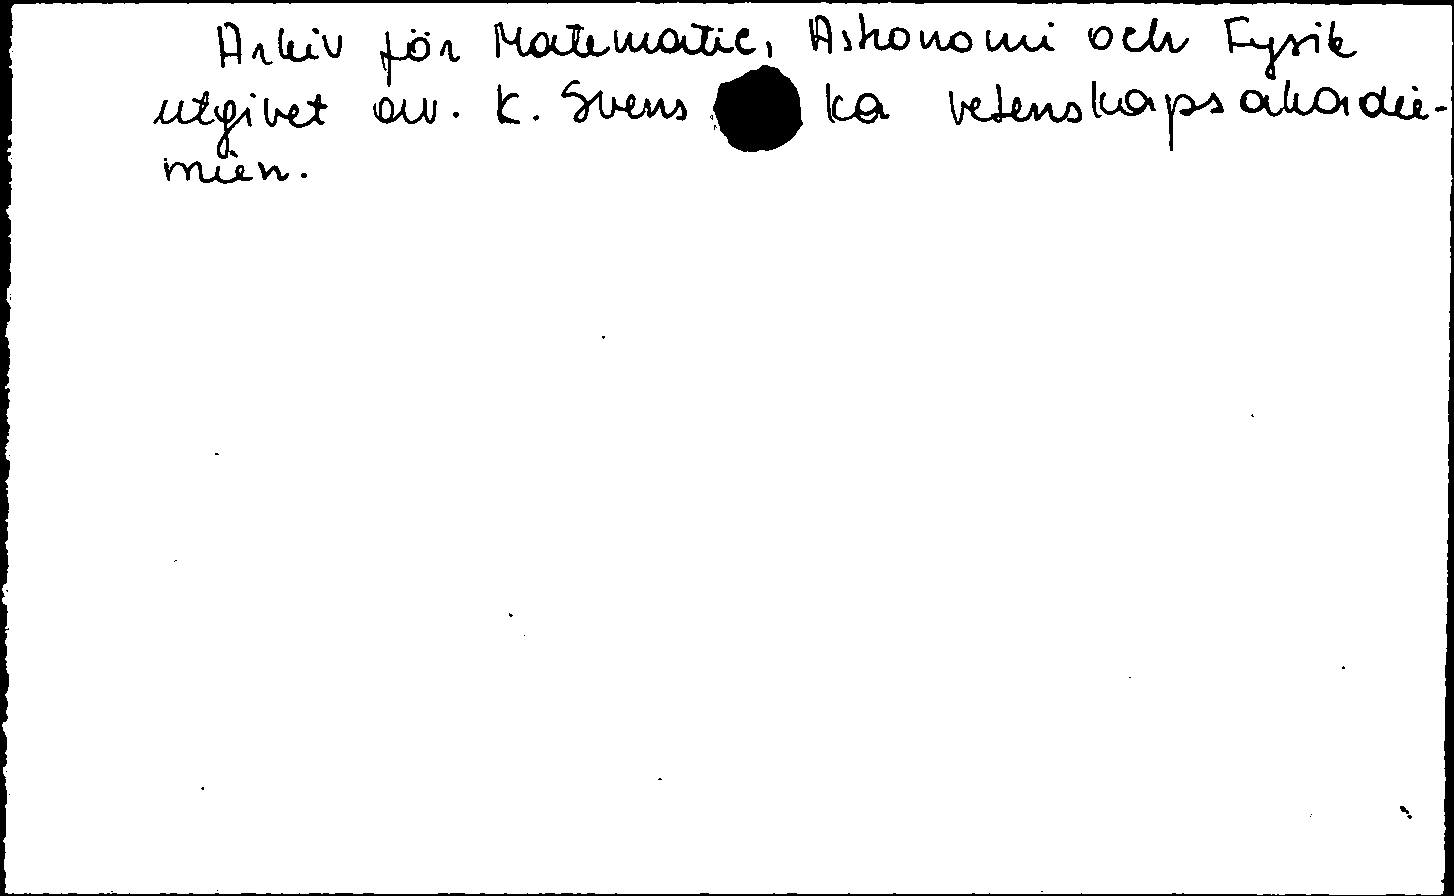 Arkiv för Matematic, Astronomi och Fysik
utgivet av. K. Svens ka vetenskapsakadie-
mien.